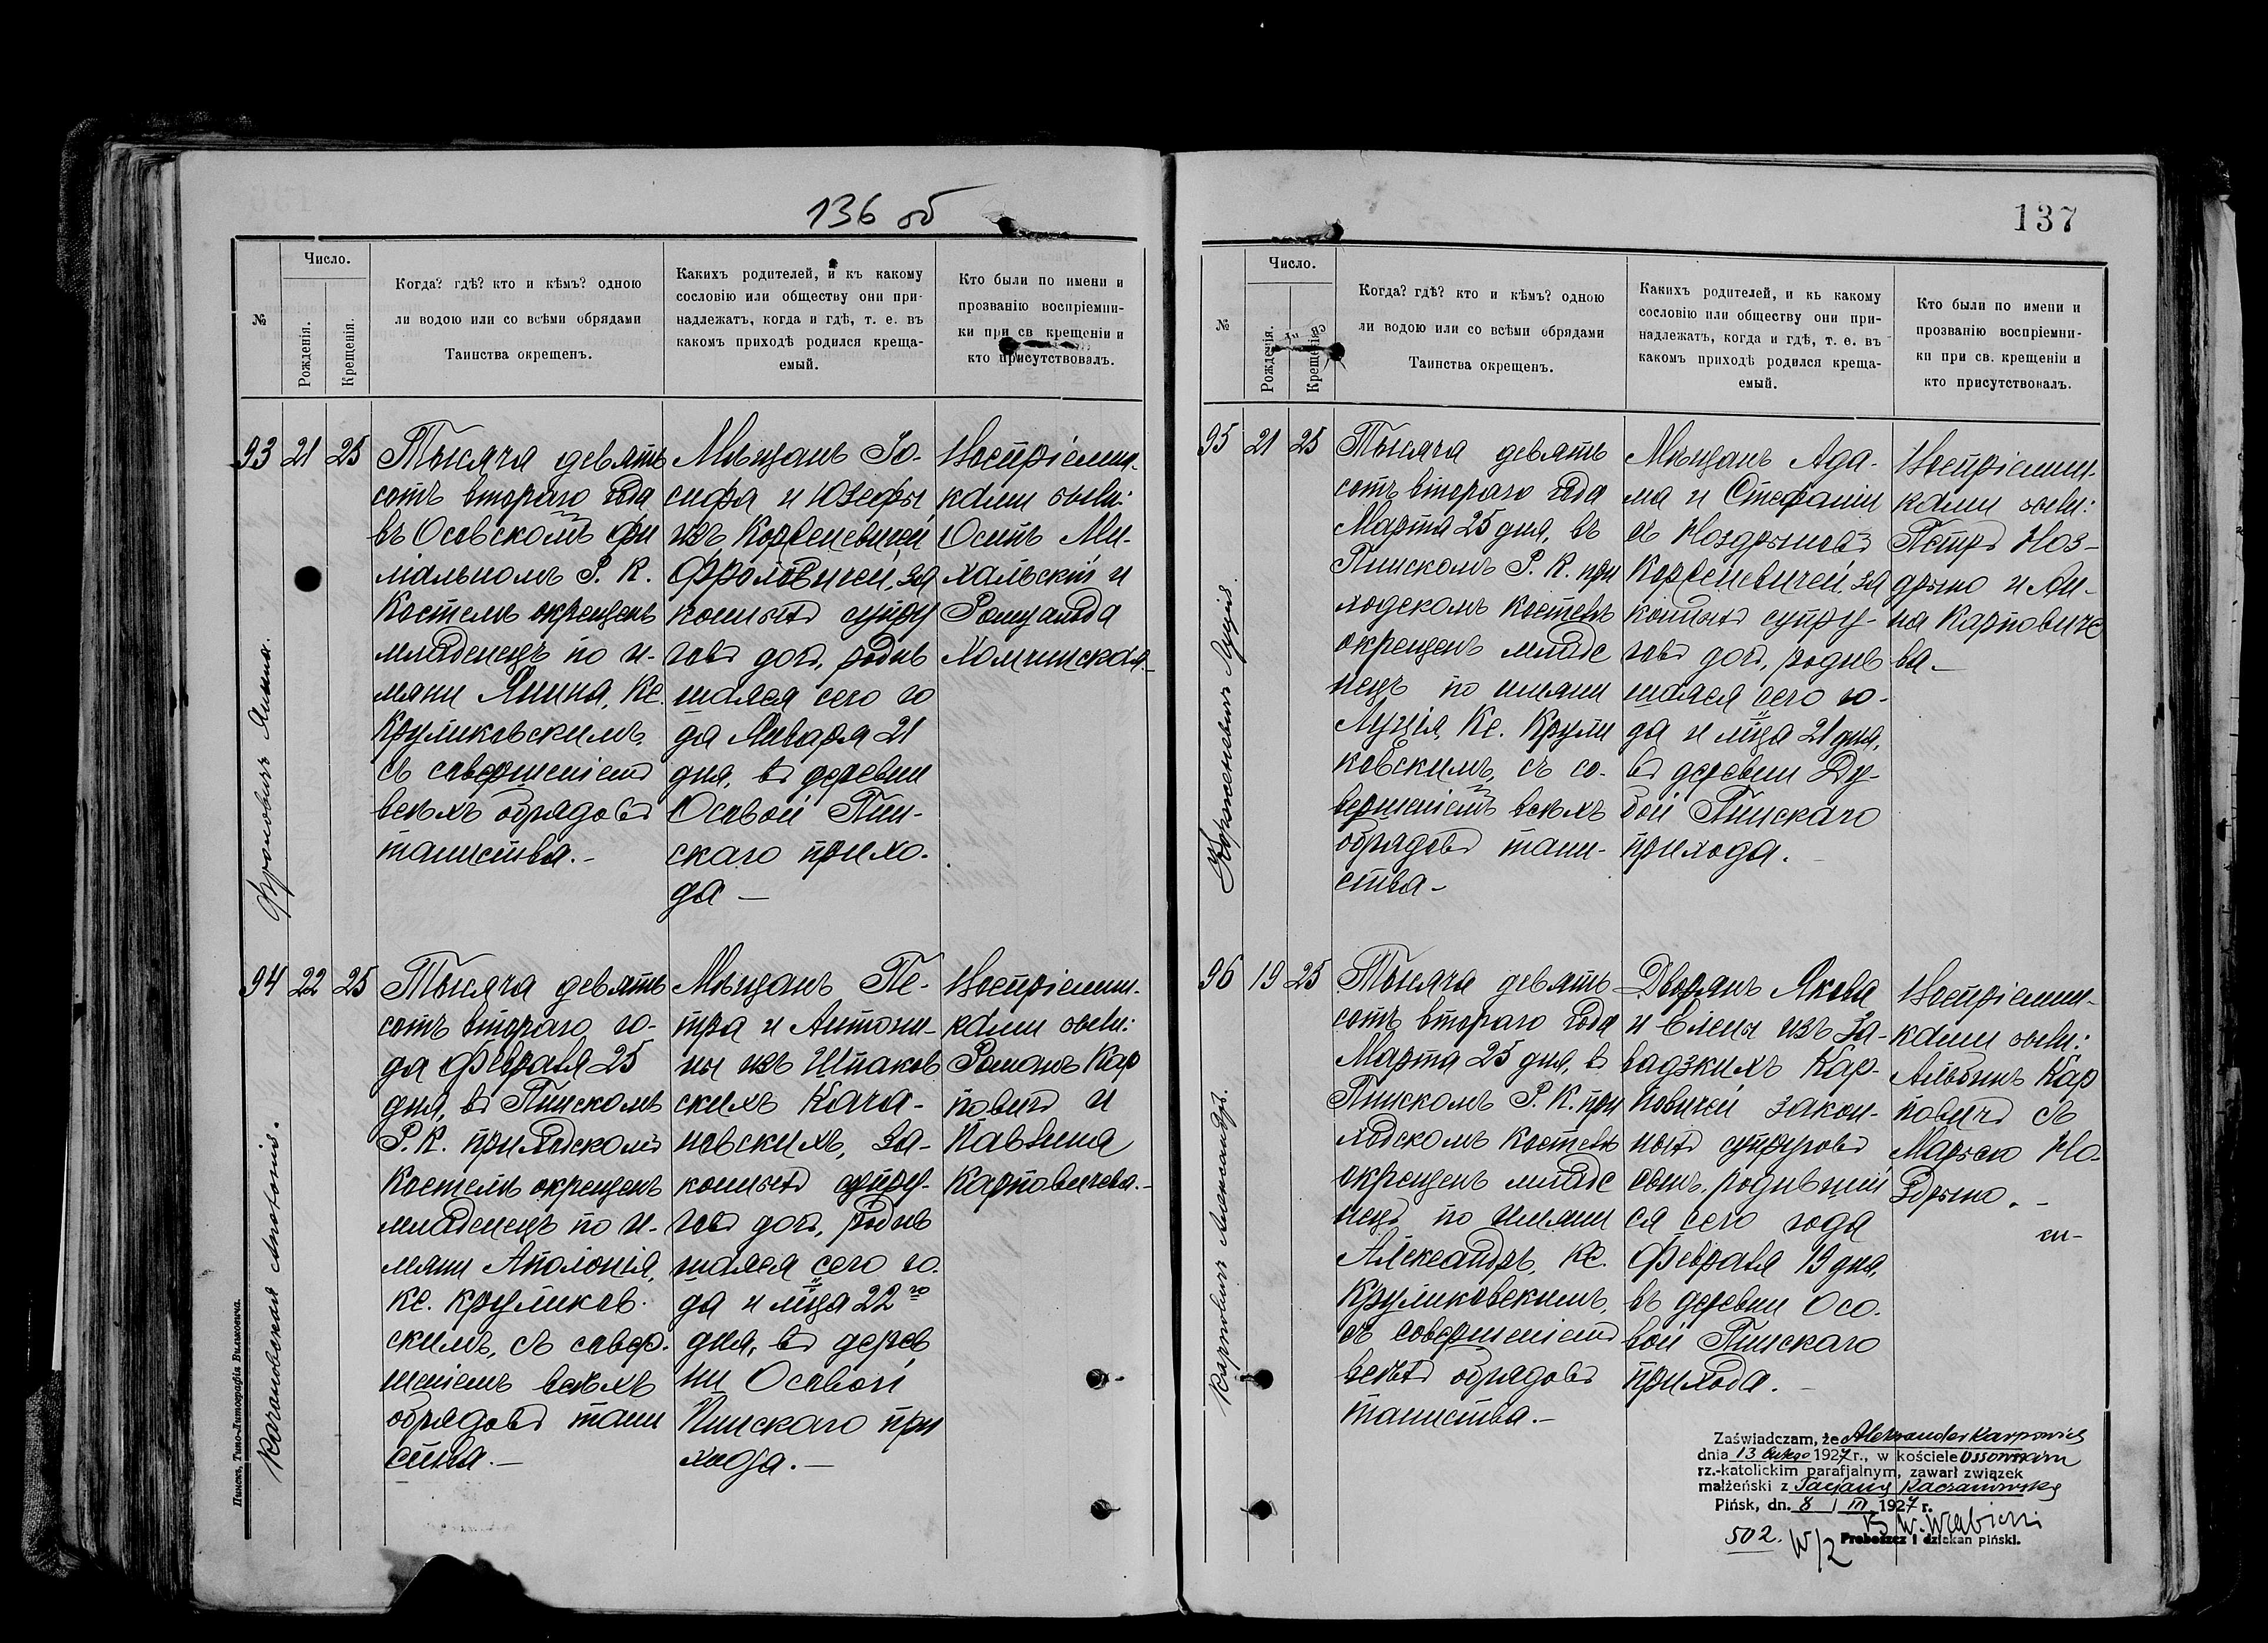 136 об
№
Число.
Рожденія.
Крещенія.
Когда? гдѣ? кто и кѣмъ? одною
ли водою или со всѣми обрядами
Таинства окрещенъ.
Какихъ родителей, и къ какому
сословію или обществу они при-
надлежатъ, когда и гдѣ, т. е. въ
какомъ приходѣ родился креща-
емый.
Кто были по имени и
прозванію воспріемни-
ки при св крещеніи и
кто присутствовалъ.
93 21 25
Фроловичъ Янина.
Тысяча девять
сотъ второго года
въ Осовскомъ фи
ліальномъ Р. К.
Костелѣ окрещенъ
младенецъ по и-
мени Янина, Кс.
Круликовскимъ,
съ совершеніемъ
всѣхъ обрядовъ
таинства.-
Мѣщанъ Іо-
сифа и Юзефы
изъ Корженевичей
Фроловичей, за
конныхъ супру
говъ дочь, родив
шаяся сего го
да Января 21
дня, въ деревни
Осовой Пин-
скаго прихо-
да -
Воспріемни-
ками были:
Осипъ Ми-
хальскій и
Ромуальда
Холчинская.-
94 22 25
Качановская Аполонія.
Тысяча девять
сотъ второго го-
да Февраля 25
дня, въ Пинскомъ
Р. К. приходскомъ
Костелѣ окрещенъ
младенецъ по и-
мени Аполонія,
Кс. Круликов-
скимъ, съ совер-
шеніемъ всѣхъ
обрядовъ таин
ства.-
Мѣщанъ Пе-
тра и Антони-
ны изъ Шпаков
скихъ Кача-
новскихъ, за-
конныхъ супру-
говъ дочь, родив
шаяся сего го-
да и м-ца 22го
дня, въ дерев
ни Осовой
Пинскаго при
хода.-
Воспріемни-
ками были:
Романъ Кар
повичъ и
Павлина
Карповичева.-
Пинскъ, Типо-Литографія Вильковича.
137
№
Число.
Рожденія.
Крещенія.
Когда? гдѣ? кто и кѣмъ? одною
ли водою или со всѣми обрядами
Таинства окрещенъ.
Какихъ родителей, и къ какому
сословію или обществу они при-
надлежатъ, когда и гдѣ, т. е. въ
какомъ приходѣ родился креща-
емый.
Кто были по имени и
прозванію воспріемни-
ки при св. крещеніи и
кто присутствовалъ.
95 21 25
Корженевичъ Луція.
Тысяча девять
сотъ второго года
Марта 25 дня, въ
Пинскомъ Р. К. при
ходскомъ Костелѣ
окрещенъ младе
нецъ по имени
Луція, Кс. Крули
ковскимъ, съ со-
вершеніемъ всѣхъ
обрядовъ таин-
ства-
Мѣщанъ Ада-
ма и Стефаніи
съ Ноздрыновъ
Корженевичей, за
конныхъ супру-
говъ дочь, родив
шаяся сего го-
да и м-ца 21 дня,
въ деревни Ду-
бой Пинскаго
прихода.
Воспріемни-
ками были:
Петръ Ноз-
дрыно и Ан-
на Карповиче
ва.-
96 19 25
Карповичъ Александръ.
Тысяча девять
сотъ второго года
Марта 25 дня, въ
Пинскомъ Р. К. при
ходскомъ Костелѣ
окрещенъ младе
нецъ по имени
Александръ, Кс.
Круликовскимъ,
съ совершеніемъ
всѣхъ обрядовъ
таинства.-
Дворянъ Якова
и Елены изъ За-
вадзкихъ Кар-
повичей закон-
ныхъ супруговъ
сынъ, родившій
ся сего года
Февраля 19 дня,
въ деревни Осо-
вой Пинскаго
прихода.-
Воспріемни-
ками были:
Альбинъ Кар
повичъ съ
Марьею Но
здрыно.-
Zaświadczam, że Aleksander Karpowicz
dnia 13 lutego 1927 r., w kościele Ossowskim
rz.-katolickim parafjalnym, zawarł związek
małżeński z Tacjaną Kaczanowską
Pińsk, dn. 8 / III 1927 r.
502.
Proboszcz i dziekan piński.